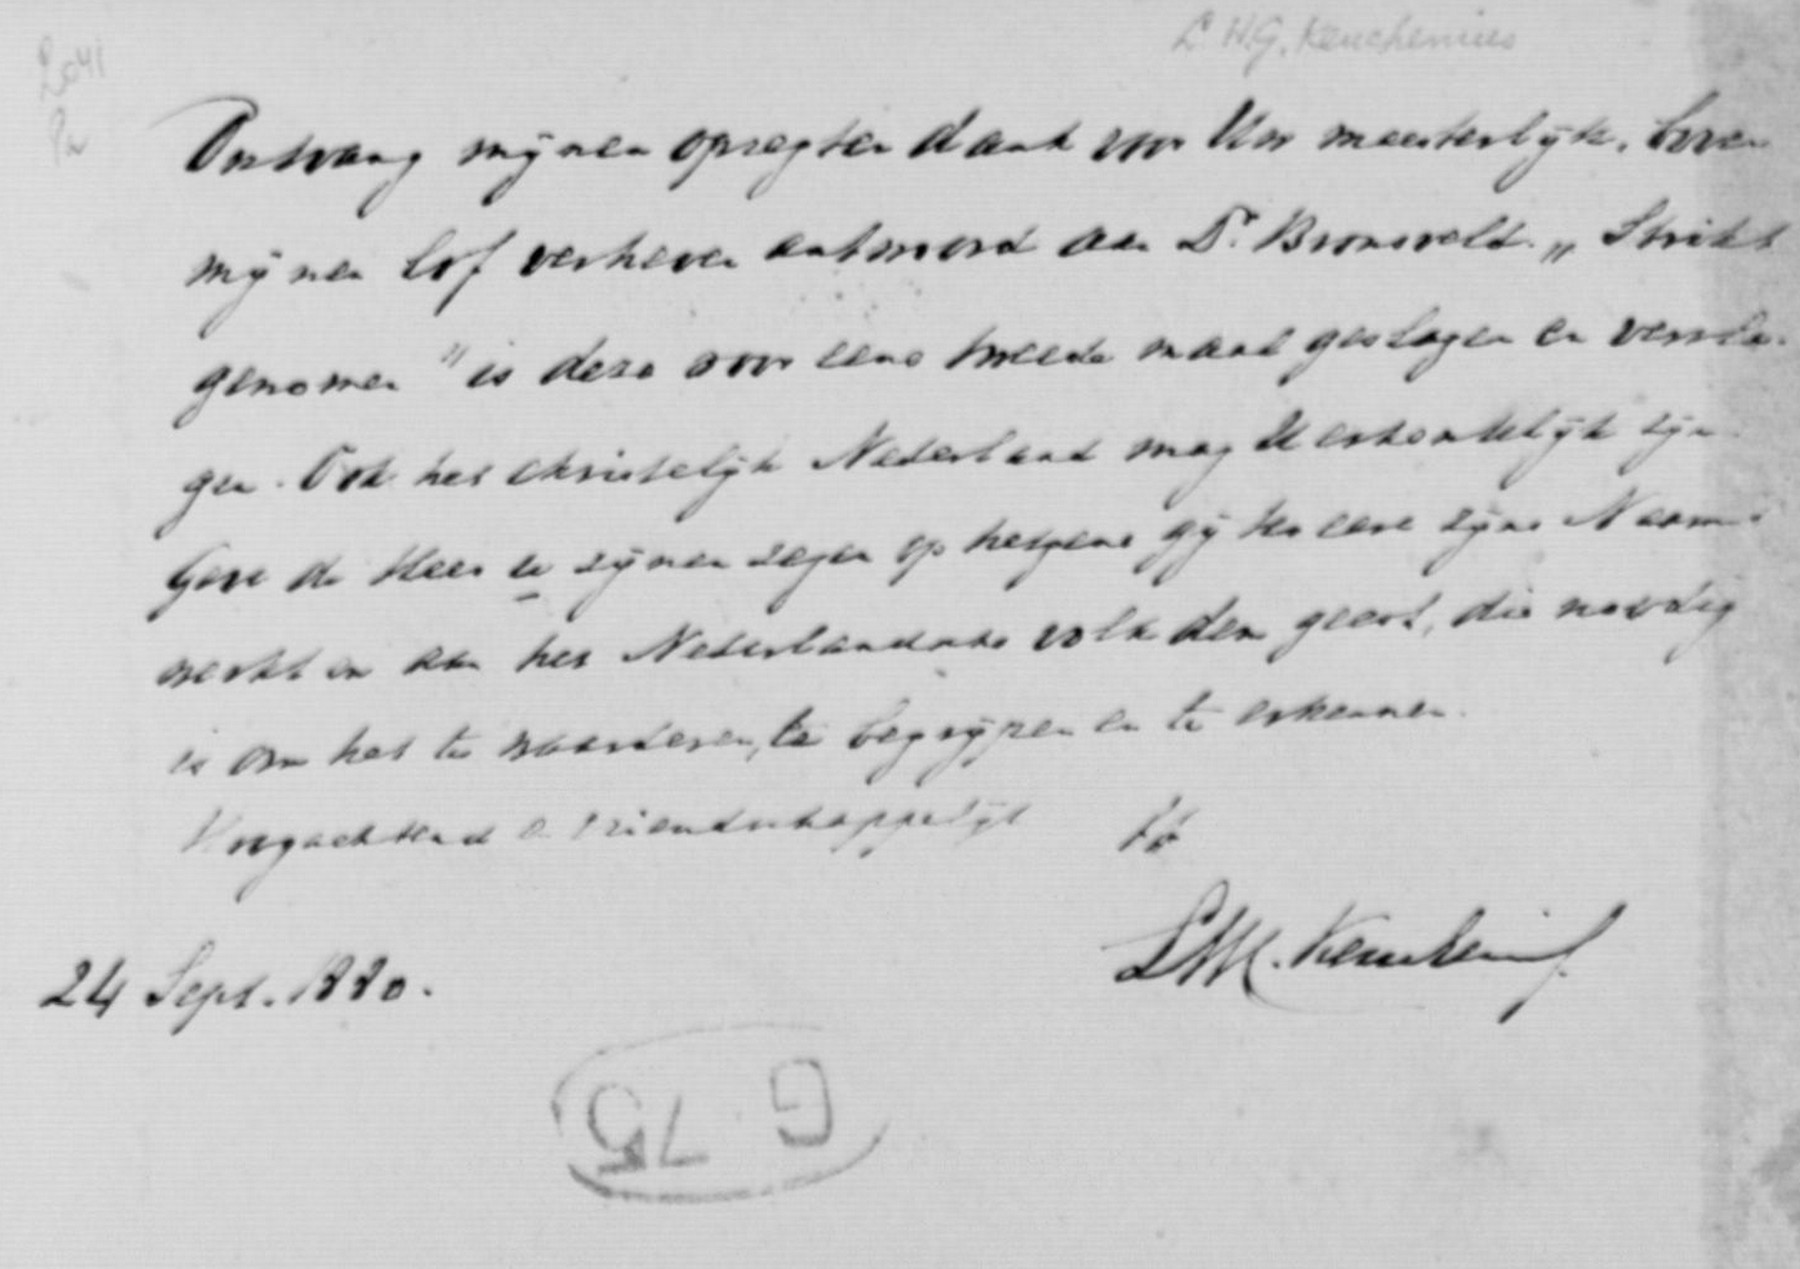 L. W.G. Keuchenius
2041
Ontvang mijnen opregten dank voor Uw meesterlijk, boven
mijnen lof verheven antwoord aan Dr. Bronsveld. „Strikt
genomen" is deze voor eene tweede maal geslagen en versla-
gen. Ook het christelijk Nederland mag U erkentelijk zijn.
Geve de Heer zijnen zegen op hetgene gij ter eere zijns Naams
werkt en aan het Nederlandsche volk den geest, die noodig
is om het te waardeeren, te begrijpen en te erkennen.
Hoogachtend en vriendschappelijk
LWC. Keuchenius
24 Sept. 1880.
G 75